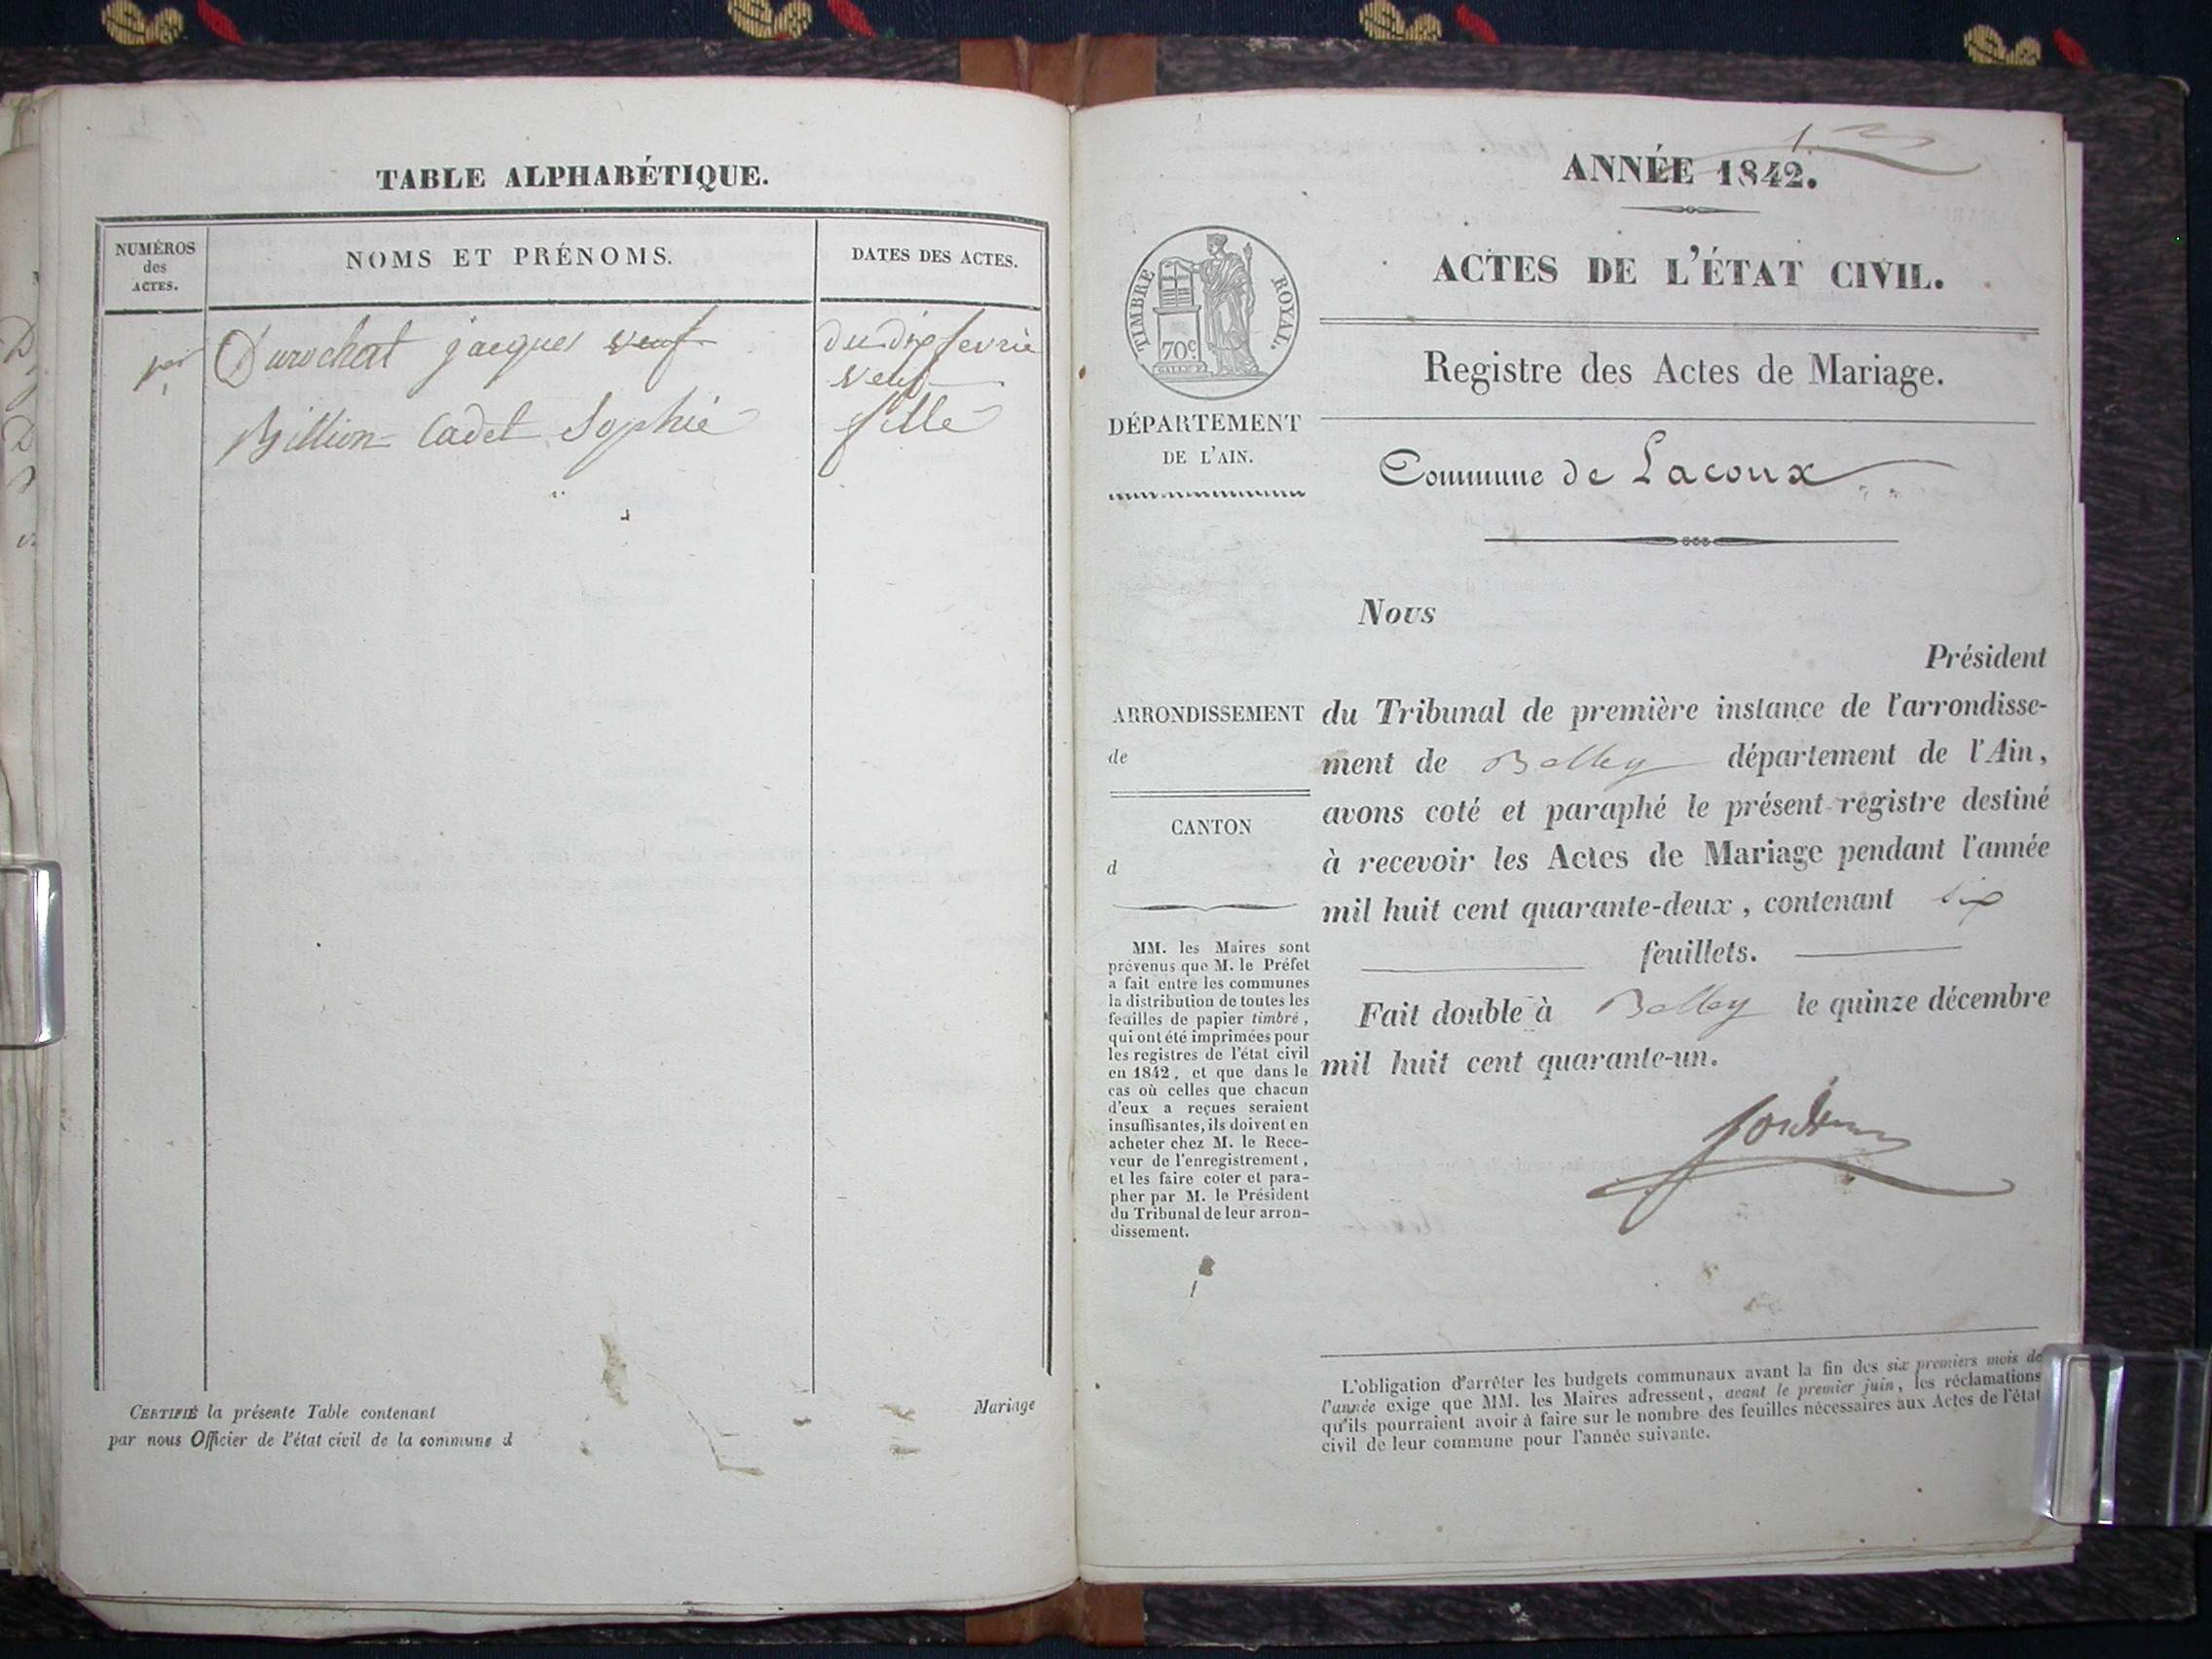 TABLE ALPHABÉTIQUE.
NUMÉROS
des
ACTES.
NOMS ET PRÉNOMS.
DATES DES ACTES.
1er Durochat jacques veuf du dix fevrier
veuf
Billion Cadet Sophie fille
CERTIFIÉ la présente Table contenant
par nous Officier de l'état civil de la commune d
Mariage
1
ANNÉE 1842.
ACTES DE L'ÉTAT CIVIL.
TIMBRE ROYAL.
70c
Registre des Actes de Mariage.
DÉPARTEMENT
DE L'AIN.
Commune de Lacoux
Nous
Président
ARRONDISSEMENT
de
CANTON
d
du Tribunal de première instance de l'arrondisse-
ment de Belley département de l'Ain,
avons coté et paraphé le présent registre destiné
à recevoir les Actes de Mariage pendant l'année
mil huit cent quarante-deux, contenant six
feuillets.
Fait double à Belley le quinze décembre
mil huit cent quarante-un.
MM. les Maires sont
prévenus que M. le Préfet
a fait entre les communes
la distribution de toutes les
feuilles de papier timbré,
qui ont été imprimées pour
les registres de l'état civil
en 1842, et que dans le
cas où celles que chacun
d'eux a reçues seraient
insuffisantes, ils doivent en
acheter chez M. le Rece-
veur de l'enregistrement,
et les faire coter et para-
pher par M. le Président
du Tribunal de leur arron-
dissement.
L'obligation d'arrêter les budgets communaux avant la fin des six premiers mois de
l'année exige que MM. les Maires adressent, avant le premier juin, les réclamations
qu'ils pourraient avoir à faire sur le nombre des feuilles nécessaires aux Actes de l'état
civil de leur commune pour l'année suivante.